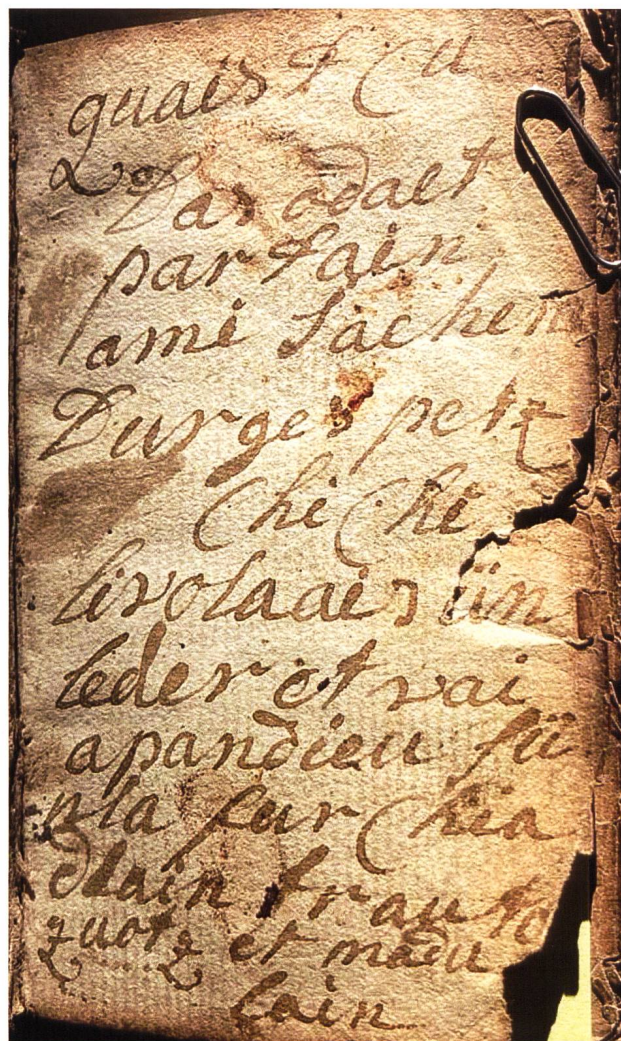 quais t Cu
Dar odalt
par tain
ami Sachen
Durges petz
Chi Chi
livolaais ün
leder et vai
apandieu sü
n la fur Chia
dlain trau to
quotz et madu
lain